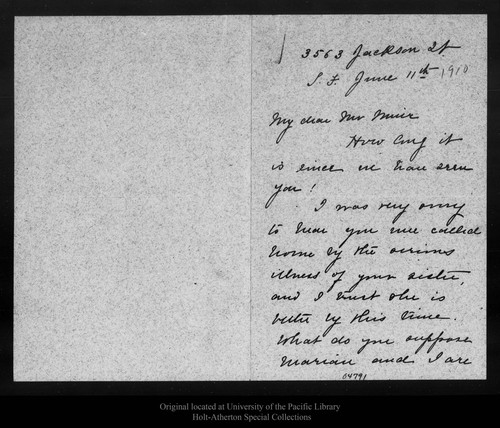 3563 Jackson St
S.F. June 11th 1910
My dear Mr Muir
How long it
is since we have seen
you!
I was very sorry
to hear you were called
home by the serious
illness of your sister,
and I trust she is
better by this time.
What do you suppose
Marian and I are
04791
Original located at University of the Pacific Library
Holt-Atherton Special Collections